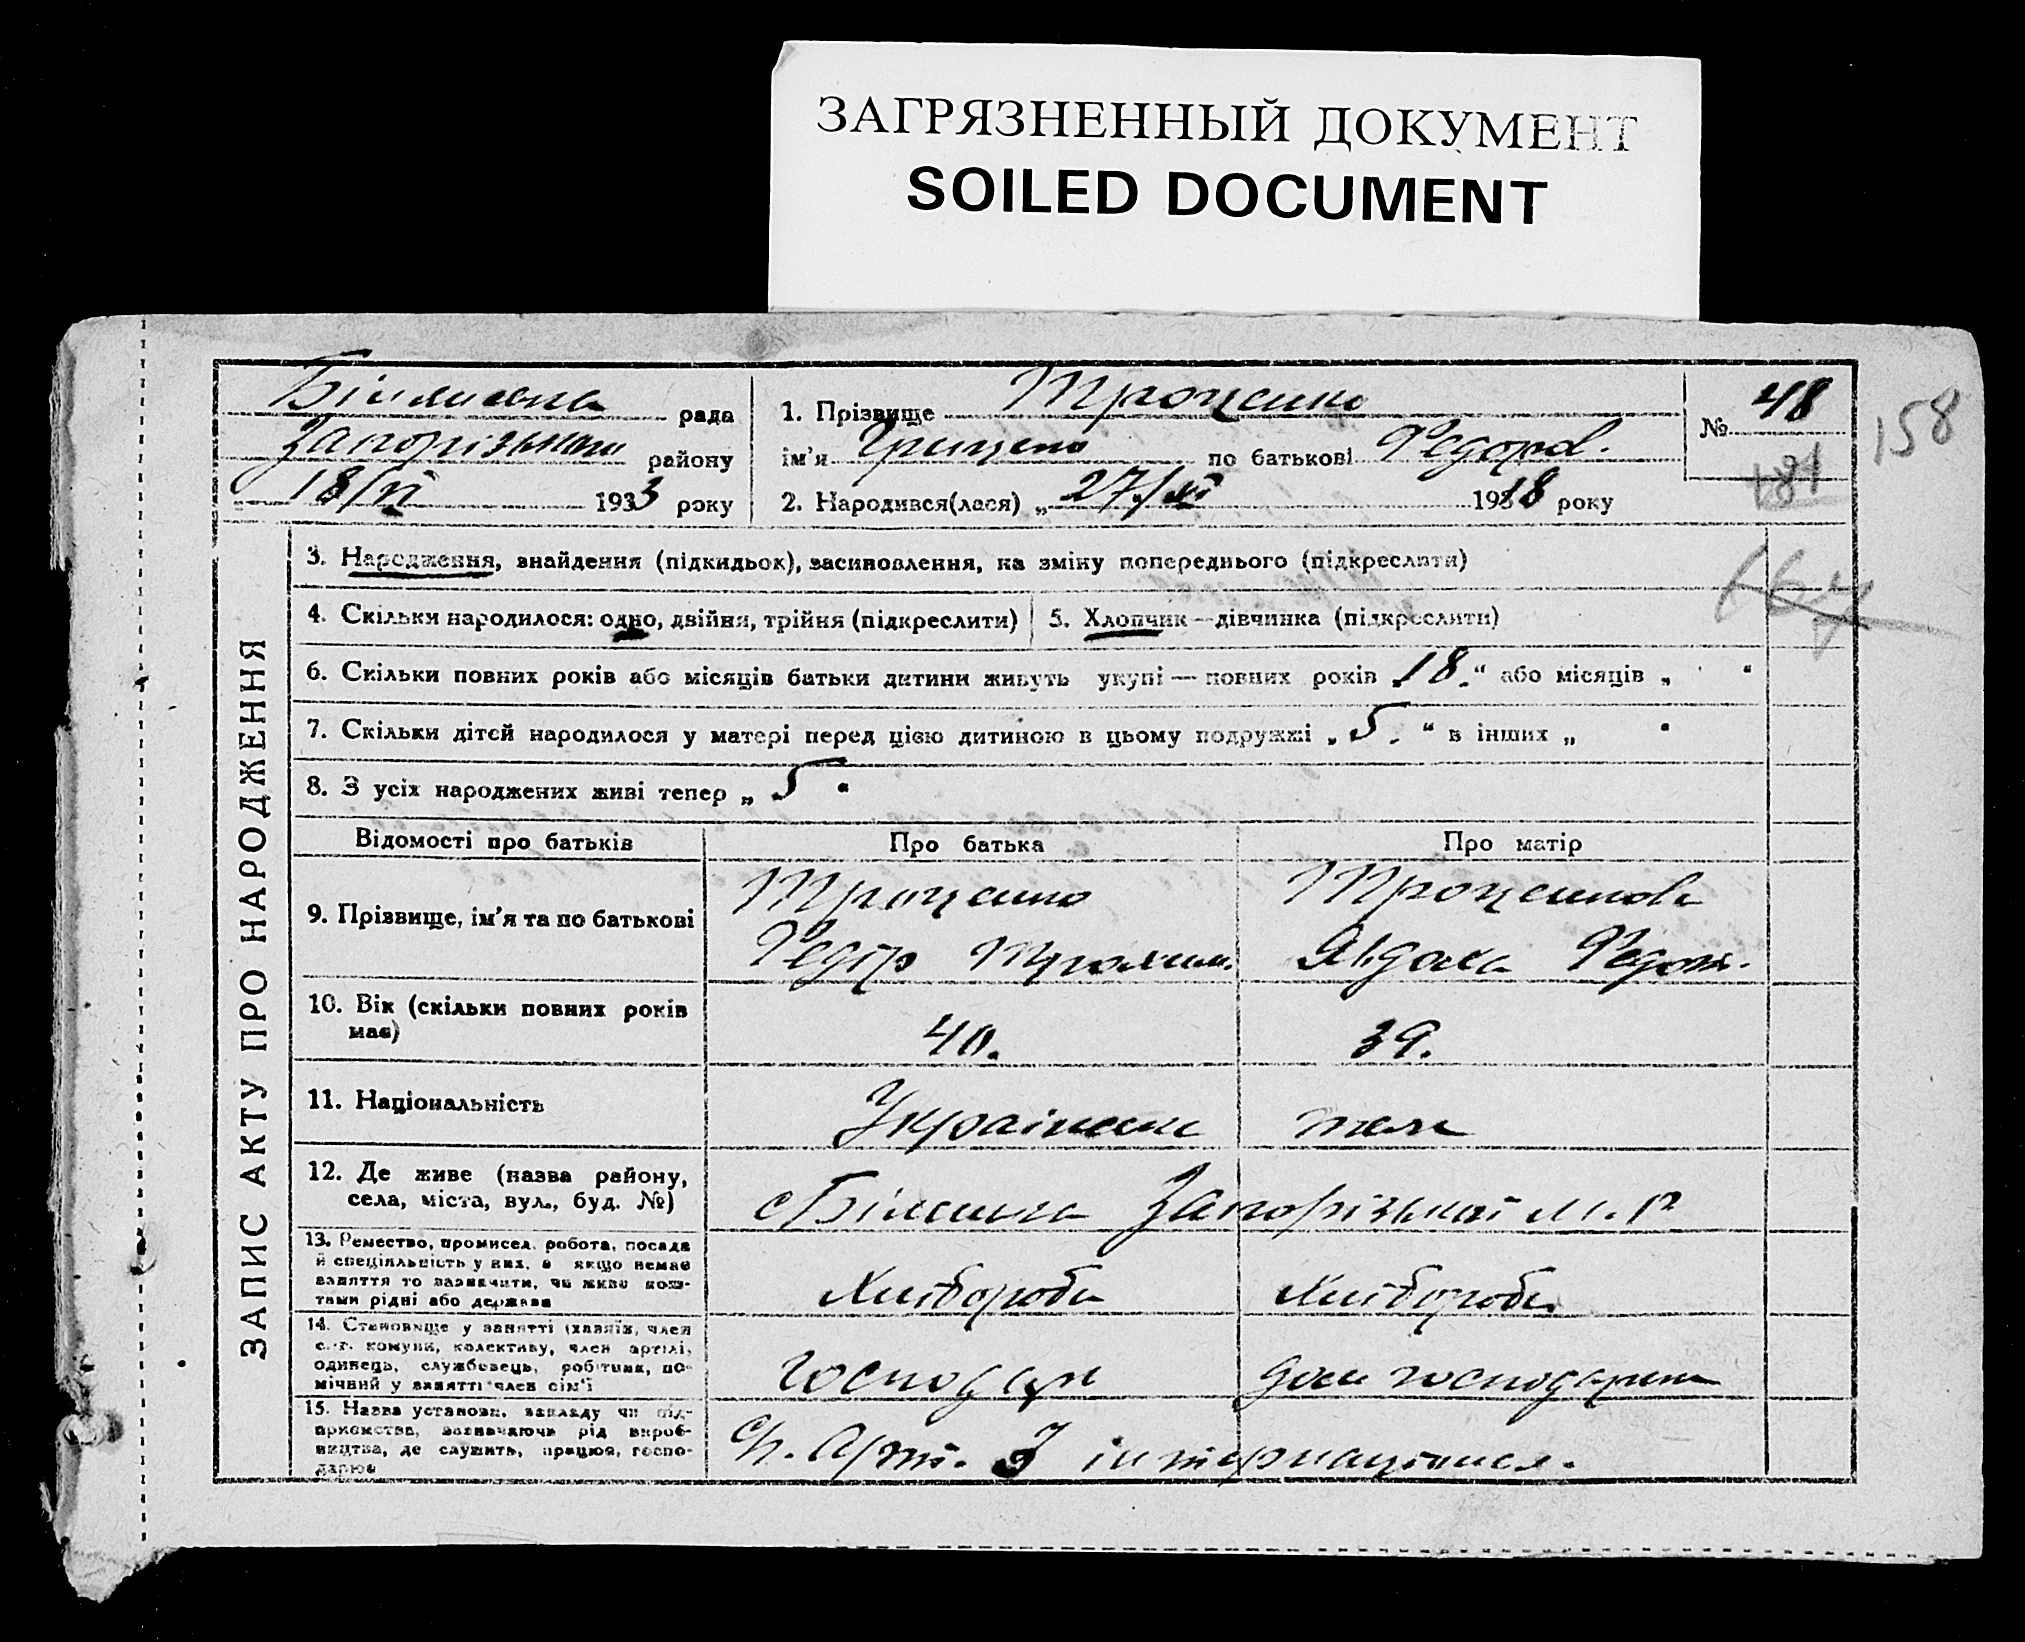 ЗАГРЯЗНЕННЫЙ ДОКУМЕНТ
SOILED DOCUMENT
рада
Запорізького району
18/VI 1933 року
1. Прізвище Троценко
ім'я Грицько по батькові Федоров.
2. Народився(лася) „ 27/XI 1918 року
№ 48
181
158
ЗАПИС АКТУ ПРО НАРОДЖЕННЯ
3. Народження, знайдення (підкидьок), засиновлення, на зміну попереднього (підкреслити)
4. Скільки народилося: одно, двійня, трійня (підкреслити)
5. Хлопчик—дівчинка (підкреслити)
6. Скільки повних років або місяців батьки дитини живуть укупі — повних років „18.“ або місяців „ “
7. Скільки дітей народилося у матері перед цією дитиною в цьому подружжі „5.“ в інших „ “
8. З усіх народжених живі тепер „5“
Відомості про батьків
Про батька
Про матір
9. Прізвище, ім'я та по батькові
Троценко
Федір Трохим.
Троценкова
Явдоха Федот.
10. Вік (скільки повних років має)
40.
39.
11. Національність
Українські
12. Де живе (назва району,
села, міста, вул., буд. №)
Запорізької м. р
13. Ремество, промисел, робота, посада
й спеціяльність у них, а якщо немає
заняття то зазначити, чи живе кош-
тами рідні або держава
Хлібороби
Хлібороби
14. Становище у занятті (хазяїн, член
с.-г. комуни, колективу, член артілі,
одинець, службовець, робітник, по-
мічний у занятті член сім'ї
господар
дом господарка
15. Назва установи, закладу чи під-
приємства, зазначаючи рід вироб-
ництва, де служить, працює, госпо-
дарює
Арт. 3 інтернаціонал.